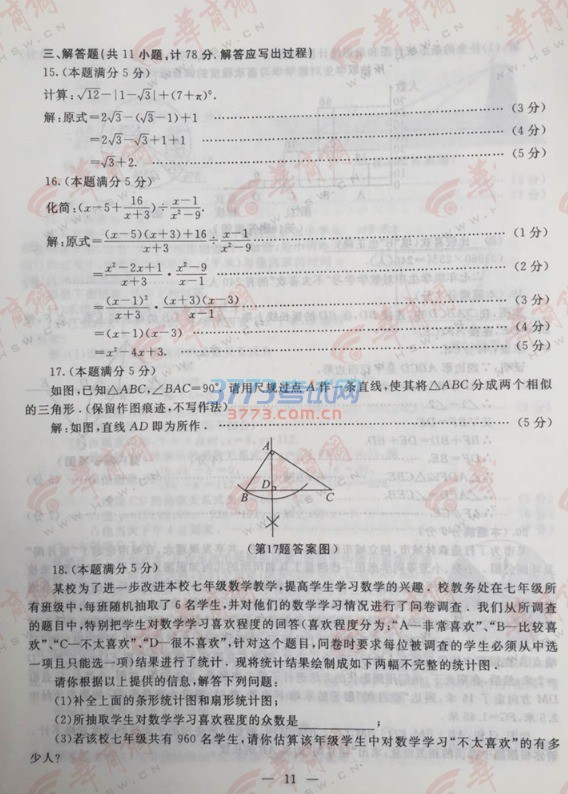 三、解答题(共 11 小题,计 78 分.解答应写出过程)
15.(本题满分 5 分)
计算:√12-|1-√3|+(7+π)⁰.
解:原式=2√3-(√3-1)+1 ……………… (3 分)
=2√3-√3+1+1 ……………… (4 分)
=√3+2. ……………… (5 分)
16.(本题满分 5 分)
化简:(x-5+16/(x+3))÷(x-1)/(x²-9).
解:原式=((x-5)(x+3)+16)/(x+3)÷(x-1)/(x²-9) ……………… (1 分)
=(x²-2x+1)/(x+3)·(x²-9)/(x-1) ……………… (2 分)
=(x-1)²/(x+3)·(x+3)(x-3)/(x-1) ……………… (3 分)
=(x-1)(x-3) ……………… (4 分)
=x²-4x+3. ……………… (5 分)
17.(本题满分 5 分)
如图,已知△ABC,∠BAC=90°.请用尺规过点 A 作一条直线,使其将△ABC 分成两个相似
的三角形.(保留作图痕迹,不写作法)
3773考试网
3773.com.cn
解:如图,直线 AD 即为所作. ……………… (5 分)
A
D
B
C
(第17题答案图)
18.(本题满分 5 分)
某校为了进一步改进本校七年级数学教学,提高学生学习数学的兴趣.校教务处在七年级所
有班级中,每班随机抽取了 6 名学生,并对他们的数学学习情况进行了问卷调查.我们从所调查
的题目中,特别把学生对数学学习喜欢程度的回答(喜欢程度分为:“A—非常喜欢”、“B—比较喜
欢”、“C—不太喜欢”、“D—很不喜欢”,针对这个题目,问卷时要求每位被调查的学生必须从中选
一项且只能选一项)结果进行了统计.现将统计结果绘制成如下两幅不完整的统计图.
请你根据以上提供的信息,解答下列问题:
(1)补全上面的条形统计图和扇形统计图;
(2)所抽取学生对数学学习喜欢程度的众数是________;
(3)若该校七年级共有 960 名学生,请你估算该年级学生中对数学学习“不太喜欢”的有多
少人?
— 11 —
华商网
HSW.CN